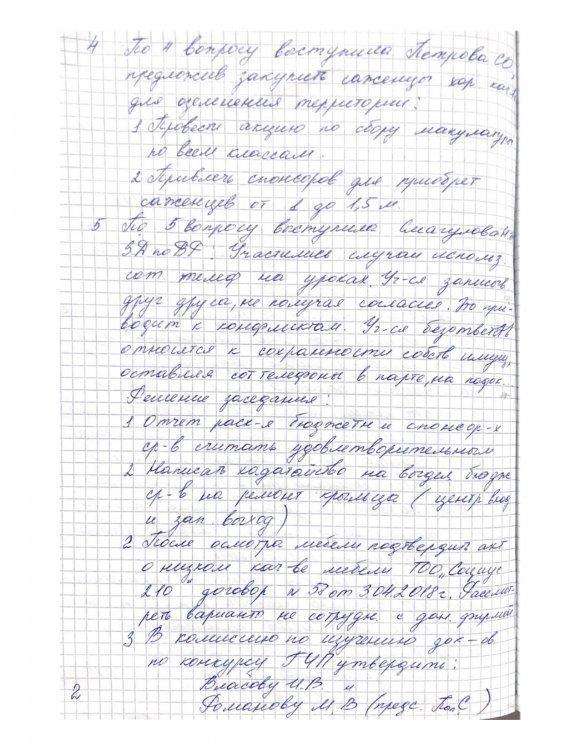 4 По 4 вопросу выступила Петрова СО,
предложив закупить саженцы хор кач-
для озеленения территории:
1 Провести акцию по сбору макулатуры
по всем классам.
2 Привлечь спонсоров для приобрет
саженцев от 1 до 1,5 м
5 По 5 вопросу выступила Смагулова
ЗД по ВР: Участились случаи использ.
сот телеф на уроках. Уч-ся записыв
друг друга, не получая согласия. Это при-
водит к конфликтам. Уч-ся безответств
относятся к сохранности собств имущ,
оставляя сот телефоны в парте, на подок...
Решение заседания:
1 Отчет расх-я бюджетн и спонсор-х
ср-в считать удовлетворительным
2 Написать ходатайство на выдел бюдж
ср-в на ремонт крыльца (центр вход
и зап выход)
2 После осмотра мебели подтвердить акт
о низком кач-ве мебели ТОО „Социус
210" договор № 58 от 3042018 г. Рассмот-
реть вариант не сотрудн с дан. фирмой
3 В комиссию по изучению док-ов
по конкурсу ГЧП утвердить:
Власову И.В. и
Романову М.В (предс. Поп.С)
2